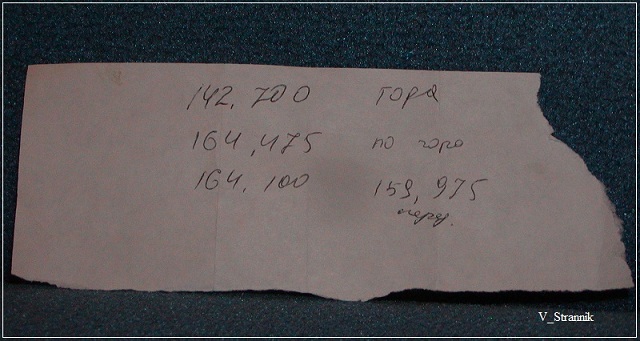 142,700 гора
164,475 по горе
164,100 159,975
перед.
V_Strannik